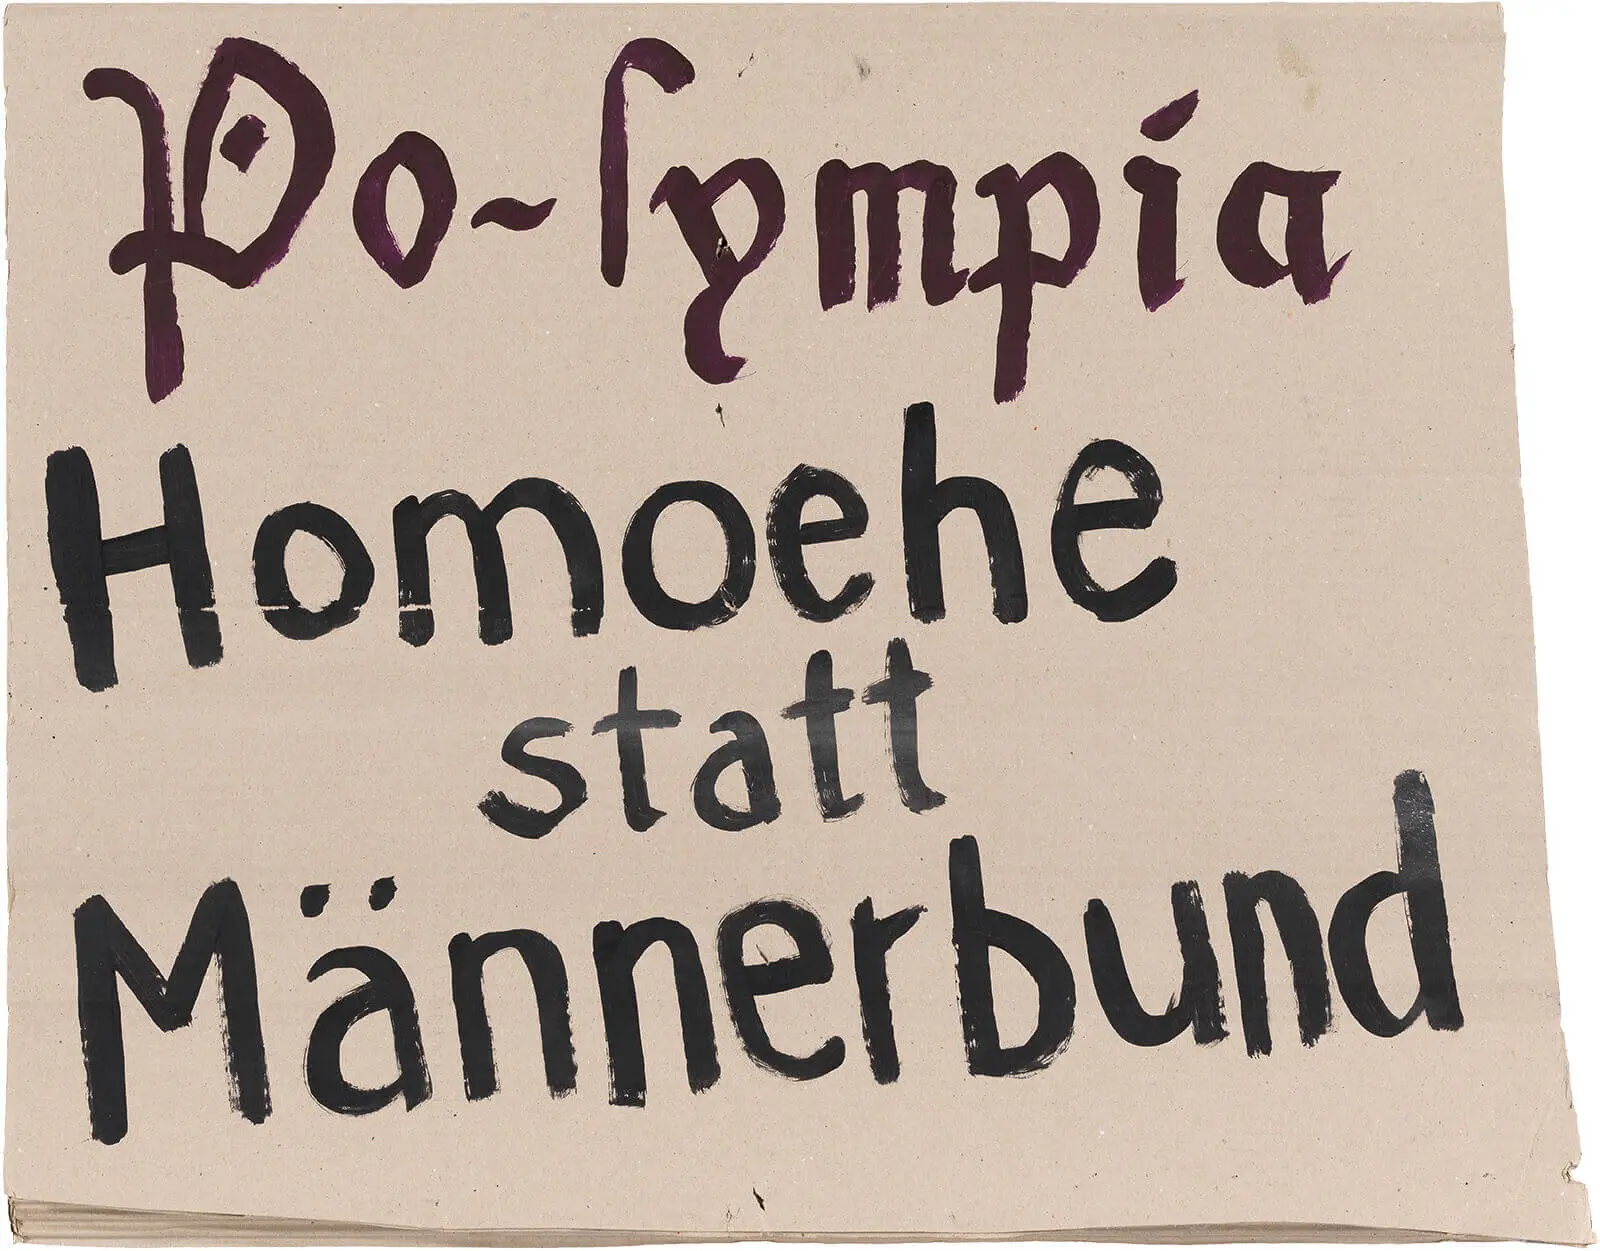 Po-lympia
Homoehe
statt
Männerbund